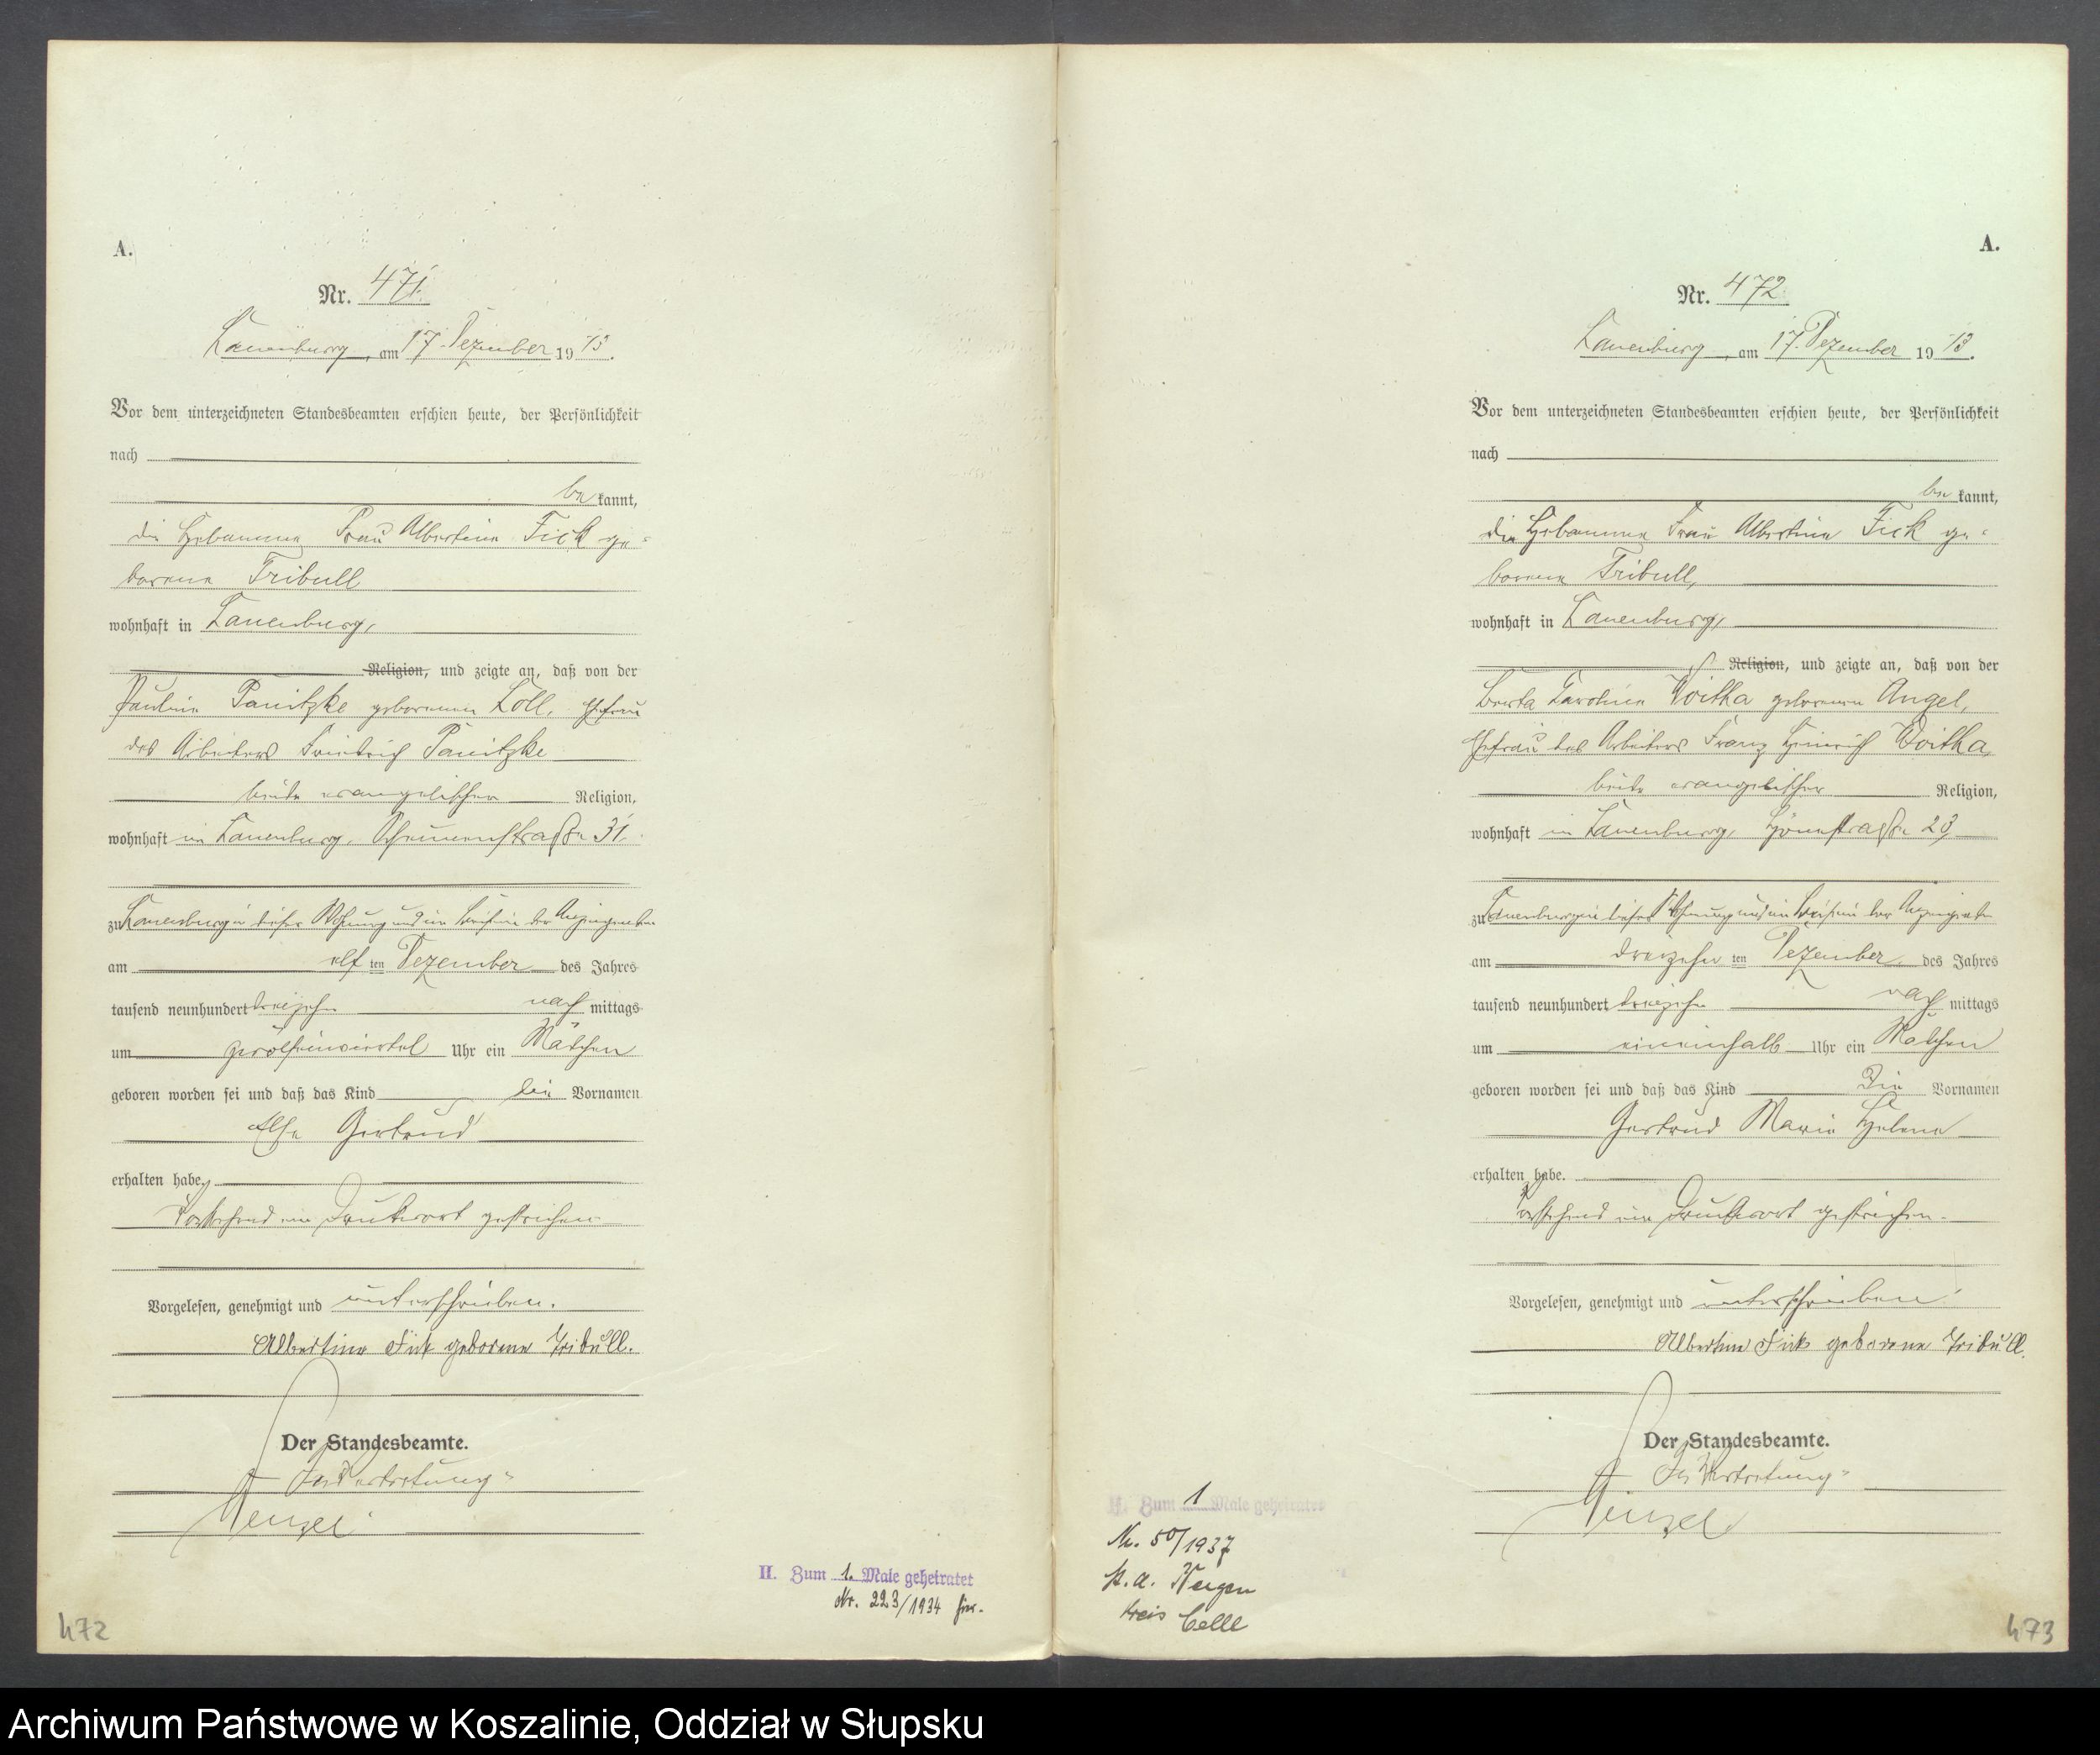 A.
Nr. 471.
Lauenburg, am 17. Dezember 1913.
Vor dem unterzeichneten Standesbeamten erschien heute, der Persönlichkeit
nach
be kannt,
die Hebamme Frau Albertine Fick ge-
borene Tribull
wohnhaft in Lauenburg,
Religion, und zeigte an, daß von der
Pauline Panitzke geborenen Löll, Ehefrau
des Arbeiters Friedrich Panitzke
beide evangelischer Religion,
wohnhaft in Lauenburg, Scheunenstraße 31.
zu Lauenburg in dieser Wohnung und im Beisein der Anzeigenden
am elf ten Dezember des Jahres
tausend neunhundert dreizehn nach mittags
um zwölfeinviertel Uhr ein Mädchen
geboren worden sei und daß das Kind die Vornamen
Else Gertrud
erhalten habe.
Vorstehend ein Druckwort gestrichen
Vorgelesen, genehmigt und unterschrieben.
Albertine Fick geborene Tribull.
Der Standesbeamte.
In Vertretung
II. Zum 1. Male geheiratet
Nr. 223/1934 hier.
472
A.
Nr. 472.
Lauenburg, am 17. Dezember 1913.
Vor dem unterzeichneten Standesbeamten erschien heute, der Persönlichkeit
nach
be kannt,
die Hebamme Frau Albertine Fick ge-
borene Tribull,
wohnhaft in Lauenburg,
Religion, und zeigte an, daß von der
Berta Karoline Woitha geborenen Angel,
Ehefrau des Arbeiters Franz Heinrich Woitha,
beide evangelischer Religion,
wohnhaft in Lauenburg, 23,
zu Lauenburg in dieser Wohnung und im Beisein der Anzeigenden
am dreizehn ten Dezember des Jahres
tausend neunhundert dreizehn nach mittags
um eineinhalb Uhr ein Mädchen
geboren worden sei und daß das Kind die Vornamen
Gertrud Marie Helene
erhalten habe.
Vorstehend ein Druckwort gestrichen.
Vorgelesen, genehmigt und unterschrieben
Albertine Fick geborene Tribull.
Der Standesbeamte.
In Vertretung
II. Zum 1 Male geheiratet
Nr. 50/1937
St. A. Bergen
Kreis Celle
473
Archiwum Państwowe w Koszalinie, Oddział w Słupsku